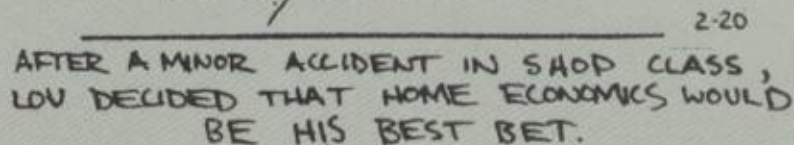 2-20
AFTER A MINOR ACCIDENT IN SHOP CLASS,
LOU DECIDED THAT HOME ECONOMICS WOULD
BE HIS BEST BET.